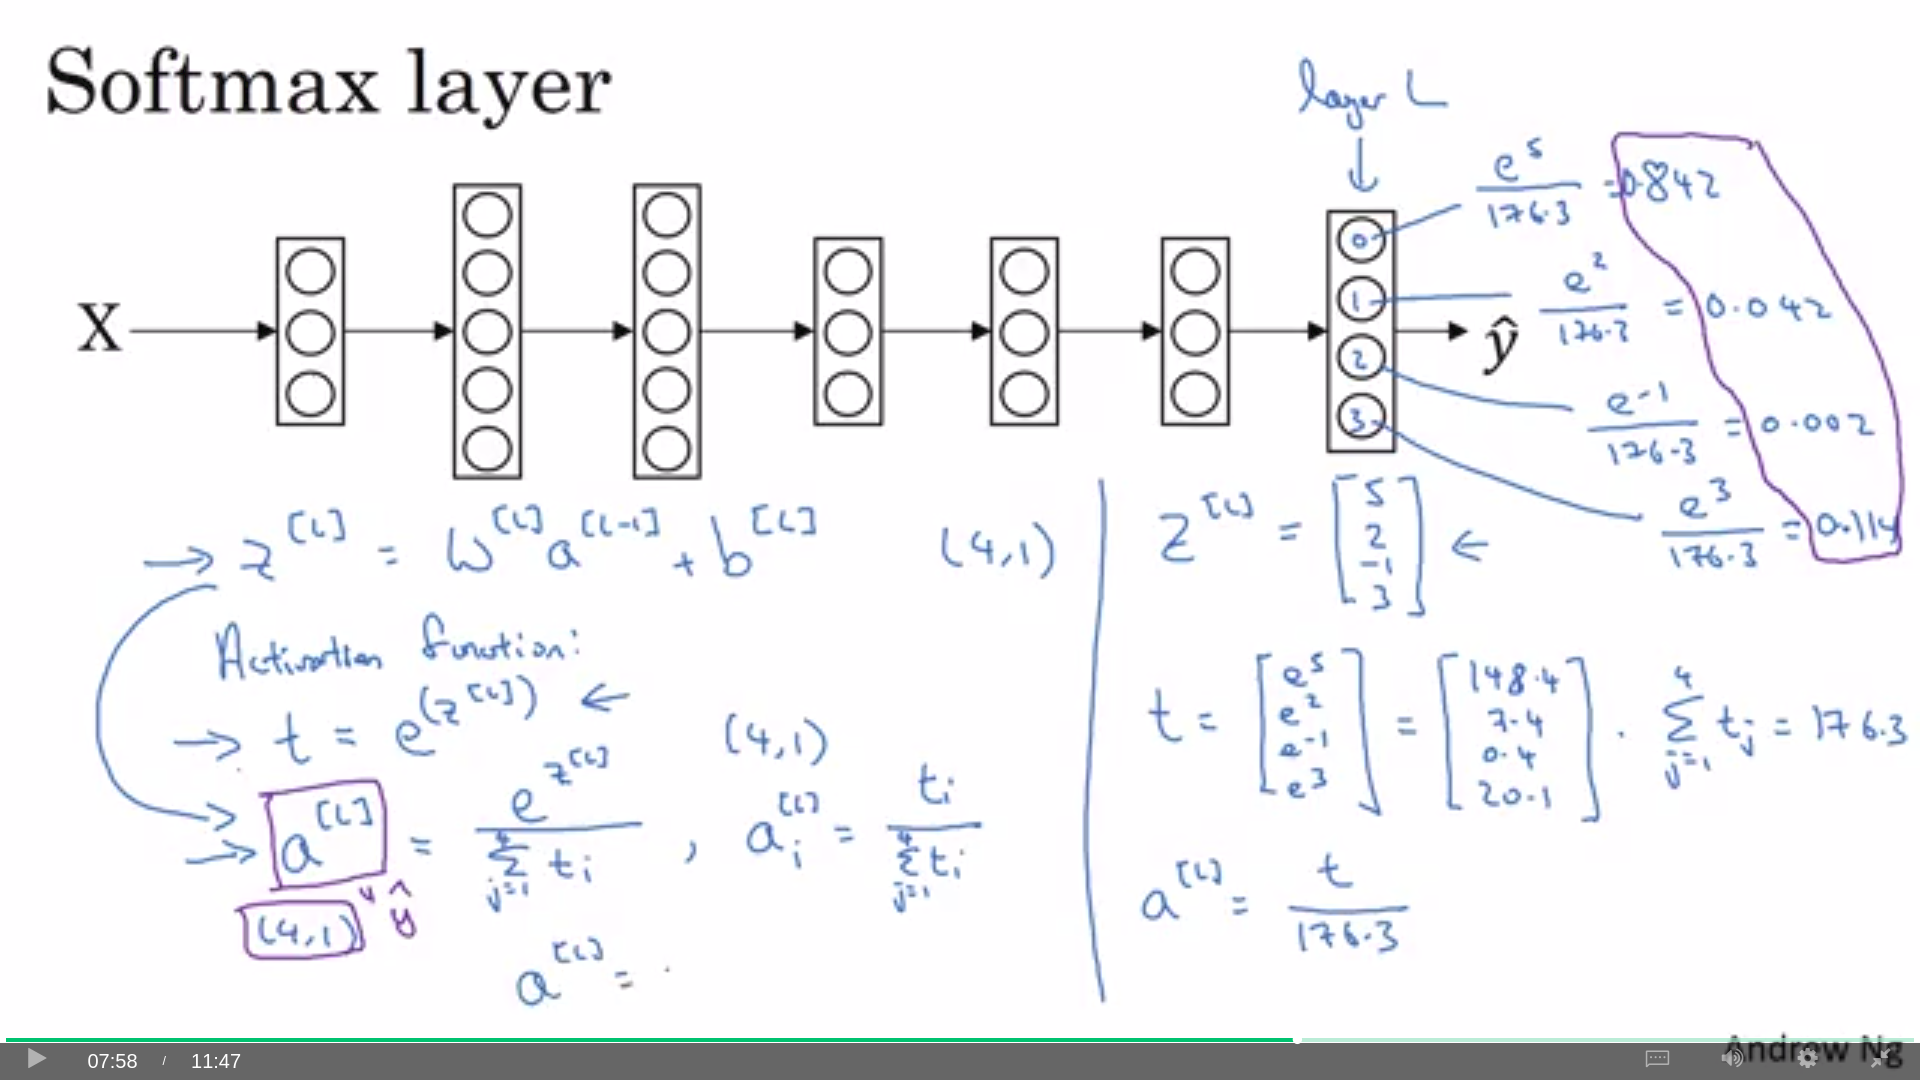 Softmax layer
layer L
X
0
1
2
3
ŷ
e^5 / 176.3 = 0.842
e^2 / 176.3 = 0.042
e^-1 / 176.3 = 0.002
e^3 / 176.3 = 0.114
→ z^[L] = W^[L] a^[L-1] + b^[L] (4,1)
Activation function:
→ t = e^(z^[L]) ← (4,1)
→ a^[L] = e^z^[L] / Σ_{j=1}^{4} t_i , a_i^[L] = t_i / Σ_{j=1}^{4} t_i
(4,1) ŷ
a^[L] =
z^[L] = [5 2 -1 3] ←
t = [e^5 e^2 e^-1 e^3] = [148.4 7.4 0.4 20.1] . Σ_{j=1}^{4} t_j = 176.3
a^[L] = t / 176.3
Andrew Ng
07:58 / 11:47